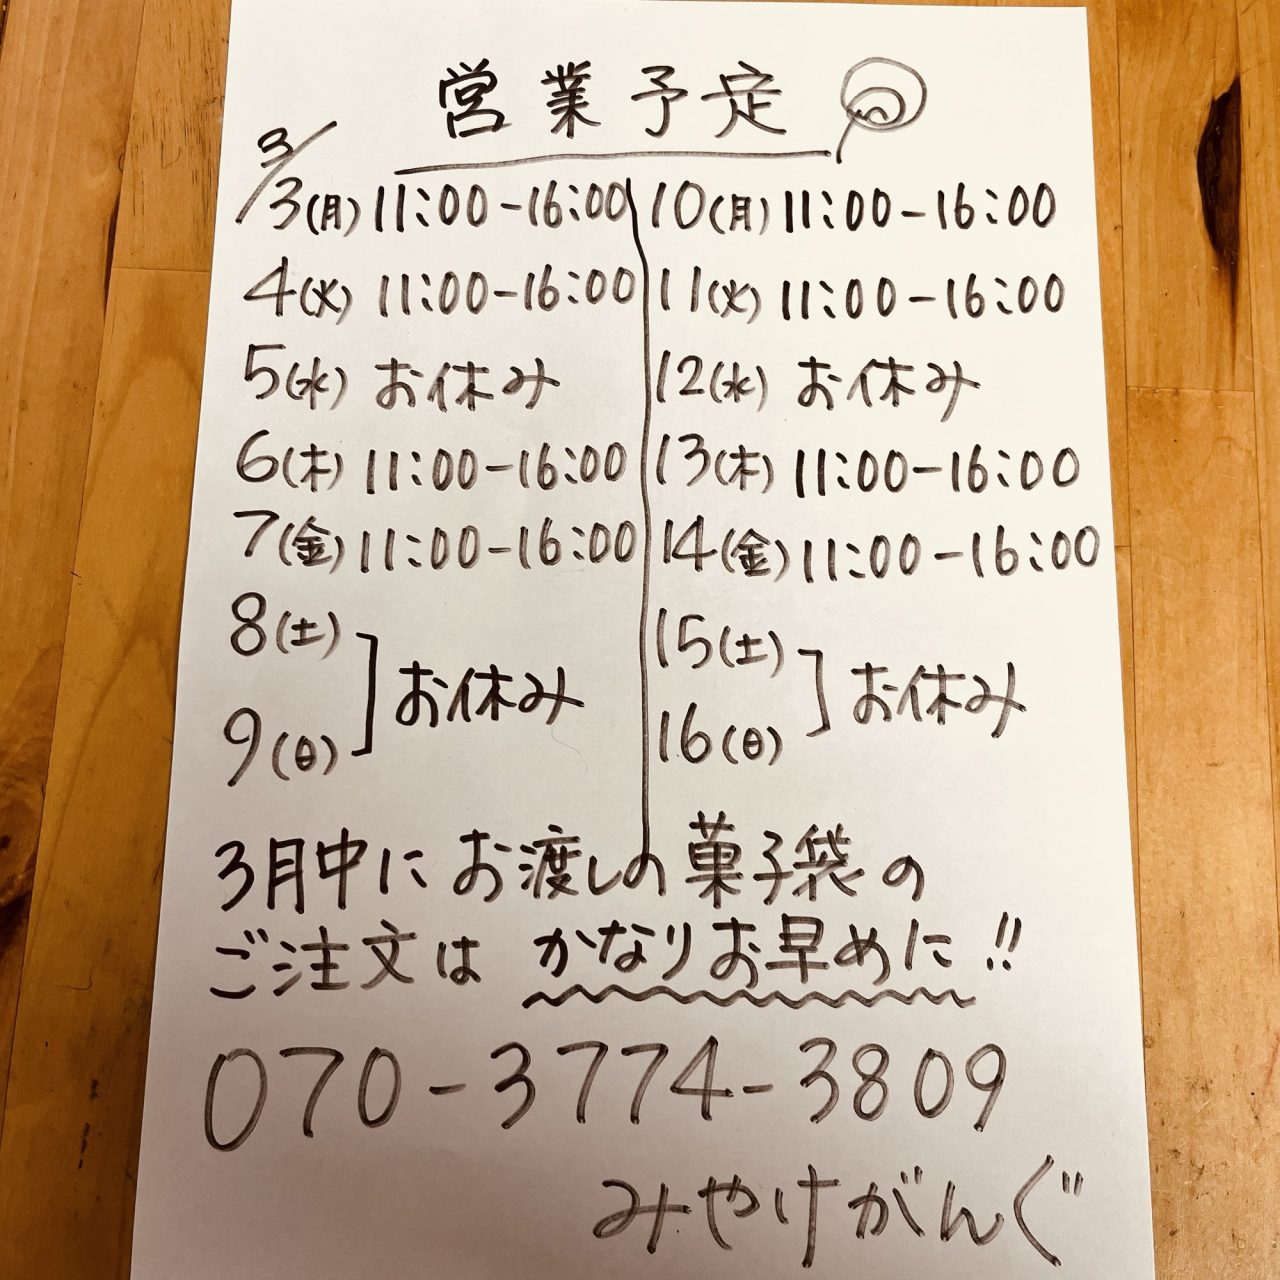 営業予定
3/3(月) 11:00-16:00
4(火) 11:00-16:00
5(水) お休み
6(木) 11:00-16:00
7(金) 11:00-16:00
8(土)
9(日)
お休み
10(月) 11:00-16:00
11(火) 11:00-16:00
12(水) お休み
13(木) 11:00-16:00
14(金) 11:00-16:00
15(土)
16(日)
お休み
3月中にお渡しの菓子袋の
ご注文は かなりお早めに!!
070-3774-3809
みやけがんぐ